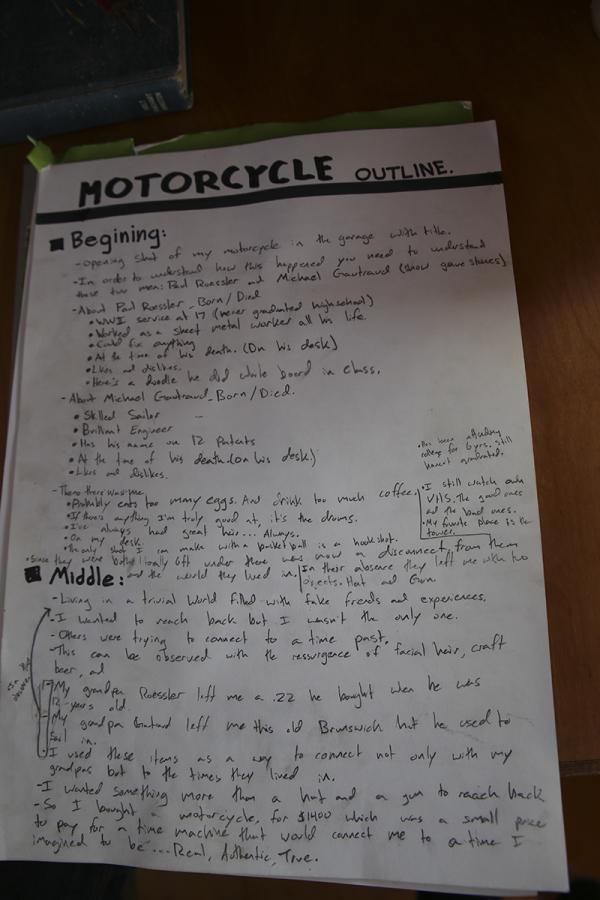 MOTORCYCLE OUTLINE.
■ Begining:
- Opening shot of my motorcycle in the garage with title.
- In order to understand how this happened you need to understand
these two men: Paul Roessler and Michael Gautraud (show grave stones)
- About Paul Roessler_Born/Died
• WWI service at 17 (never graduated highschool)
• Worked as a sheet metal worker all his life.
• Could fix anything
• At the time of his death. (On his desk)
• Likes and dislikes.
• Here's a doodle he did while bored in class.
- About Michael Gautraud_Born/Died.
• Skilled Sailor
• Brilliant Engineer
• Has his name on 12 Patents
• At the time of his death. (on his desk)
• Likes and dislikes.
- Then there was me
• Probably eats too many eggs. And drink too much coffee.
• If there's anything I'm truly good at, it's the drums.
• I've always had great hair... Always.
• On my desk.
• The only shot I can make with a basketball is a hookshot.
• Has been attending
college for 6 yrs. still
hasn't graduated.
• I still watch only
VHS. The good ones
and the bad ones.
• My favorite place is the
tower.
• Since they were both 6ft under there was now a disconnect from them
and the world they lived in. In their absence they left me with two
objects. Hat and Gun
■ Middle:
- Living in a trivial world filled with fake friends and experiences.
- I wanted to reach back but I wasn't the only one.
- Others were trying to connect to a time past.
- This can be observed with the ressurgence of facial hair, craft
beer, ad
In their absence
- My grandpa Roessler left me a .22 he bought when he was
12 years old.
- My grandpa Gautraud left me this old Brunswick hat he used to
sail in.
- I used these items as a way to connect not only with my
grandpas but to the times they lived in.
- I wanted something more than a hat and a gun to reach back
- So I bought a motorcycle, for $1400 which was a small price
to pay for a time machine that would connect me to a time I
imagined to be... Real, Authentic, True.